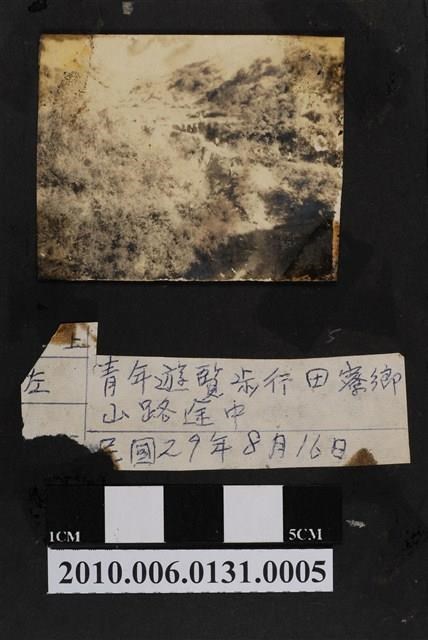 上
左
青年遊覽步行田寮鄉
山路途中
民國29年8月16日
1CM
5CM
2010.006.0131.0005